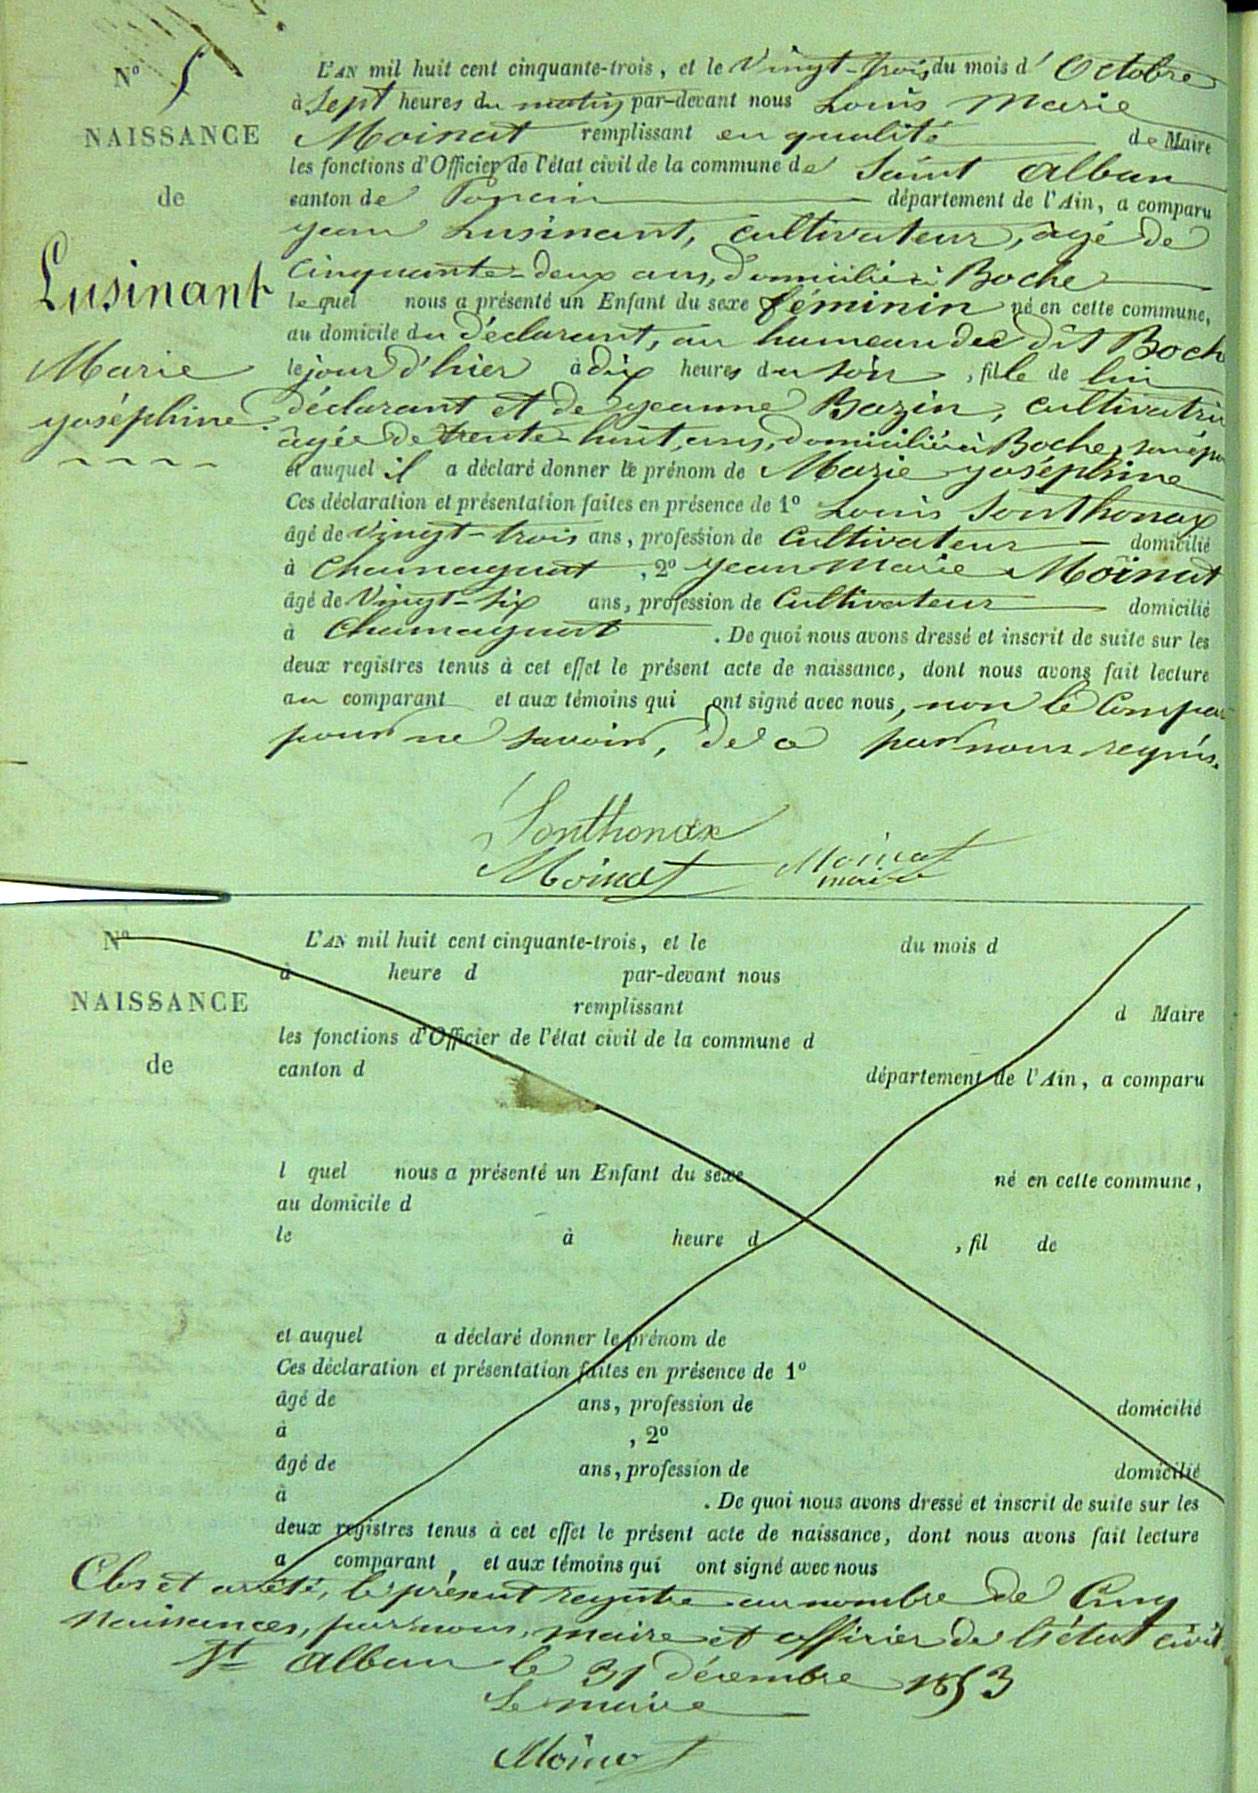 N° 5
NAISSANCE
de
Lusinant
Marie
Joséphine
L'AN mil huit cent cinquante-trois, et le Vingt-trois du mois d'Octobre
à Sept heures du matin par-devant nous Louis Marie
Moinat remplissant en qualité de Maire
les fonctions d'Officier de l'état civil de la commune de Saint Alban
canton de Poncin département de l'Ain, a comparu
Jean Lusinant, cultivateur, âgé de
Cinquante-deux ans, domicilié à Boche
lequel nous a présenté un Enfant du sexe féminin né en cette commune,
au domicile du déclarant, au hameau dit Boch
le jour d'hier à dix heures du soir, fille de lui
déclarant et de Jeanne Bazin, cultivatri
âgée de trente-huit ans, domiciliée à Boche, son épo
et auquel il a déclaré donner le prénom de Marie Joséphine
Ces déclaration et présentation faites en présence de 1° Louis Sonthonax
âgé de Vingt-trois ans, profession de Cultivateur domicilié
à Chamagnat, 2° Jean Marie Moinat
âgé de Vingt-six ans, profession de Cultivateur domicilié
à Chamagnat. De quoi nous avons dressé et inscrit de suite sur les
deux registres tenus à cet effet le présent acte de naissance, dont nous avons fait lecture
au comparant et aux témoins qui ont signé avec nous, non le Compar
pour ne savoir, de ce par nous requis.
Sonthonax
Moinat Moinat
maire
N°
NAISSANCE
de
L'AN mil huit cent cinquante-trois, et le du mois d
à heure d par-devant nous
remplissant d Maire
les fonctions d'Officier de l'état civil de la commune d
canton d département de l'Ain, a comparu
l quel nous a présenté un Enfant du sexe né en cette commune,
au domicile d
le à heure d , fil de
et auquel a déclaré donner le prénom de
Ces déclaration et présentation faites en présence de 1°
âgé de ans, profession de domicilié
à , 2°
âgé de ans, profession de domicilié
à . De quoi nous avons dressé et inscrit de suite sur les
deux registres tenus à cet effet le présent acte de naissance, dont nous avons fait lecture
a comparant, et aux témoins qui ont signé avec nous
Clos et arrêté, le présent registre au nombre de Cinq
Naissances, par nous, maire et officier de l'état civil
St Alban le 31 décembre 1853
Le maire
Moinat